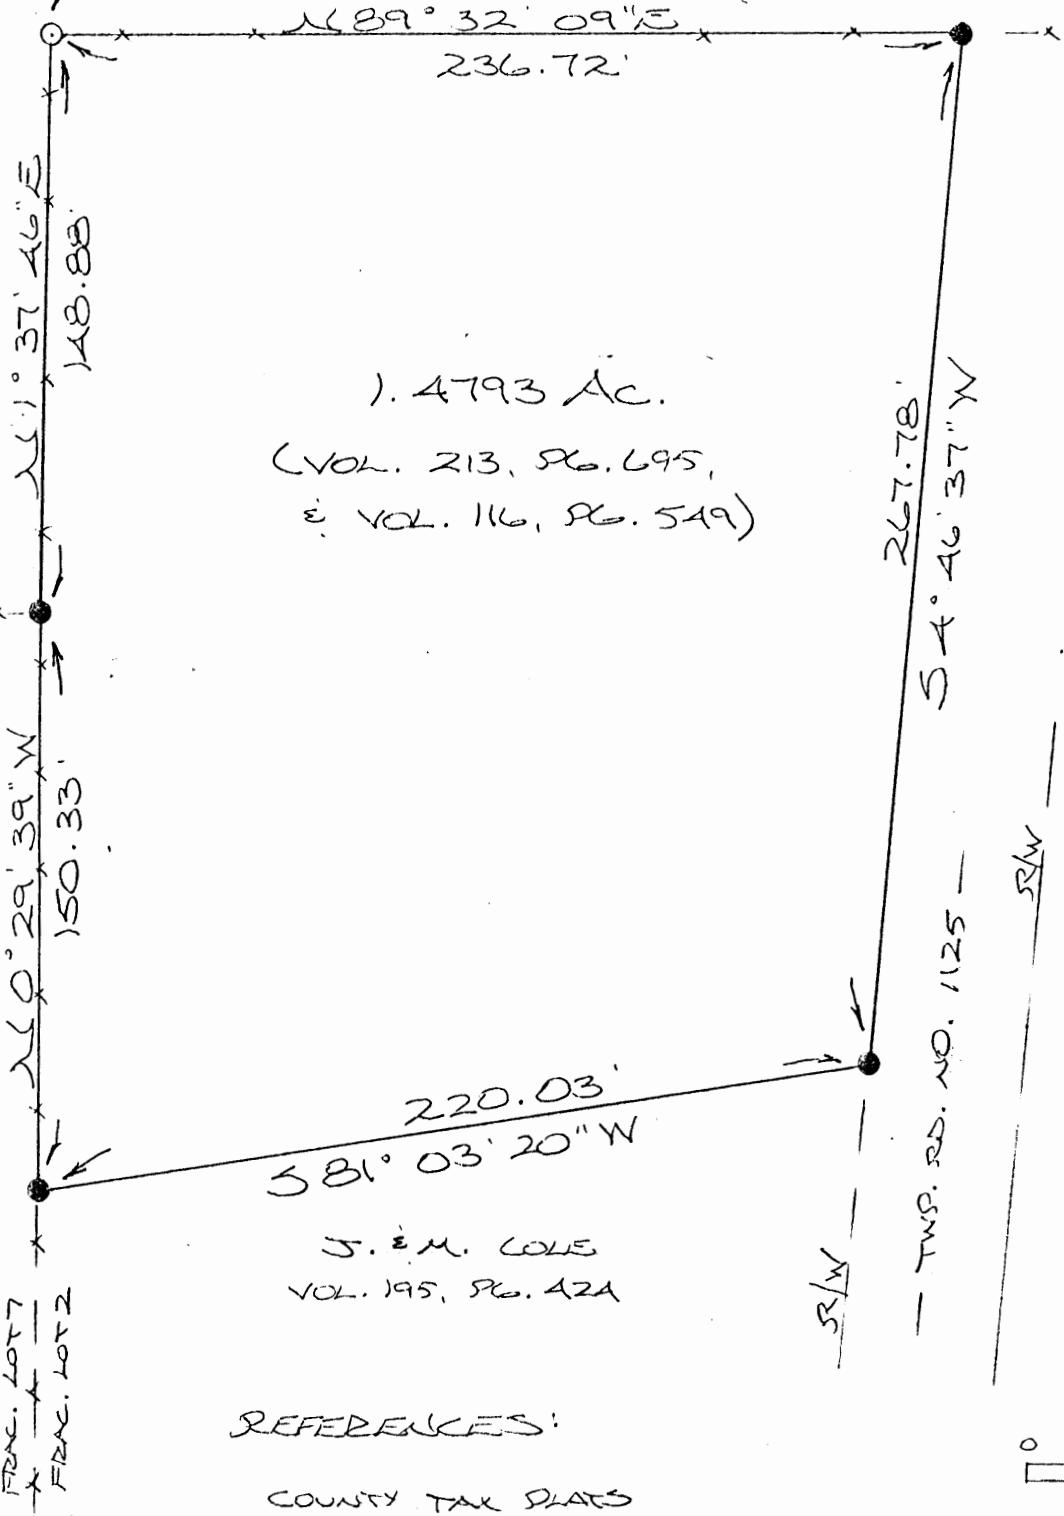 N 89° 32' 09" E
236.72'
N 1° 37' 46" E
148.88'
1.4793 AC.
(VOL. 213, PG. 695,
& VOL. 116, PG. 549)
267.78'
S 4° 46' 37" W
N 0° 29' 39" W
150.33'
R/W
TWP. RD. NO. 1125
220.03'
S 81° 03' 20" W
J. & M. COLE
VOL. 195, PG. 424
R/W
FRAC. LOT 7
FRAC. LOT 2
REFERENCES:
COUNTY TAX PLATS
0